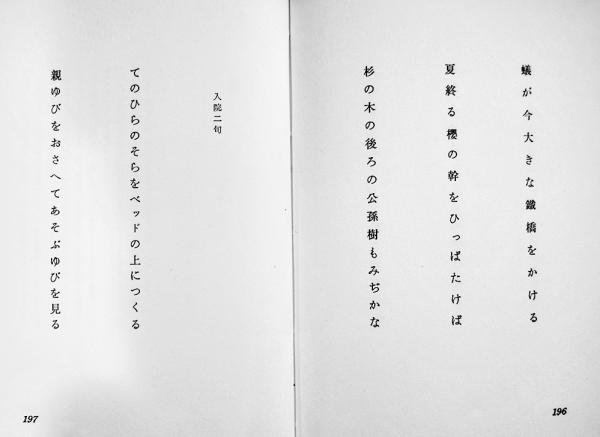 蟻が今大きな鐵橋をかける
夏終る櫻の幹をひっぱたけば
杉の木の後ろの公孫樹もみぢかな
196
入院二句
てのひらのそらをベッドの上につくる
親ゆびをおさへてあそぶゆびを見る
197